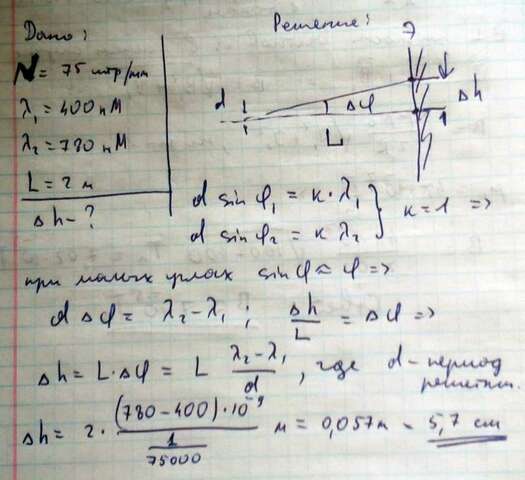 Дано:
N = 75 штр/мм
λ₁ = 400 нМ
λ₂ = 780 нМ
L = 2 м
Δh - ?
Решение:
d
Δφ
L
Δh
d sin φ₁ = к · λ₁
d sin φ₂ = к λ₂
к = 1 =>
при малых углах sin φ ≈ φ =>
d Δφ = λ₂ - λ₁ ; Δh/L = Δφ =>
Δh = L · Δφ = L (λ₂ - λ₁)/d , где d - период
решетки.
Δh = 2 · (780 - 400) · 10⁻⁹ / (1/75000) м = 0,057 м = 5,7 см